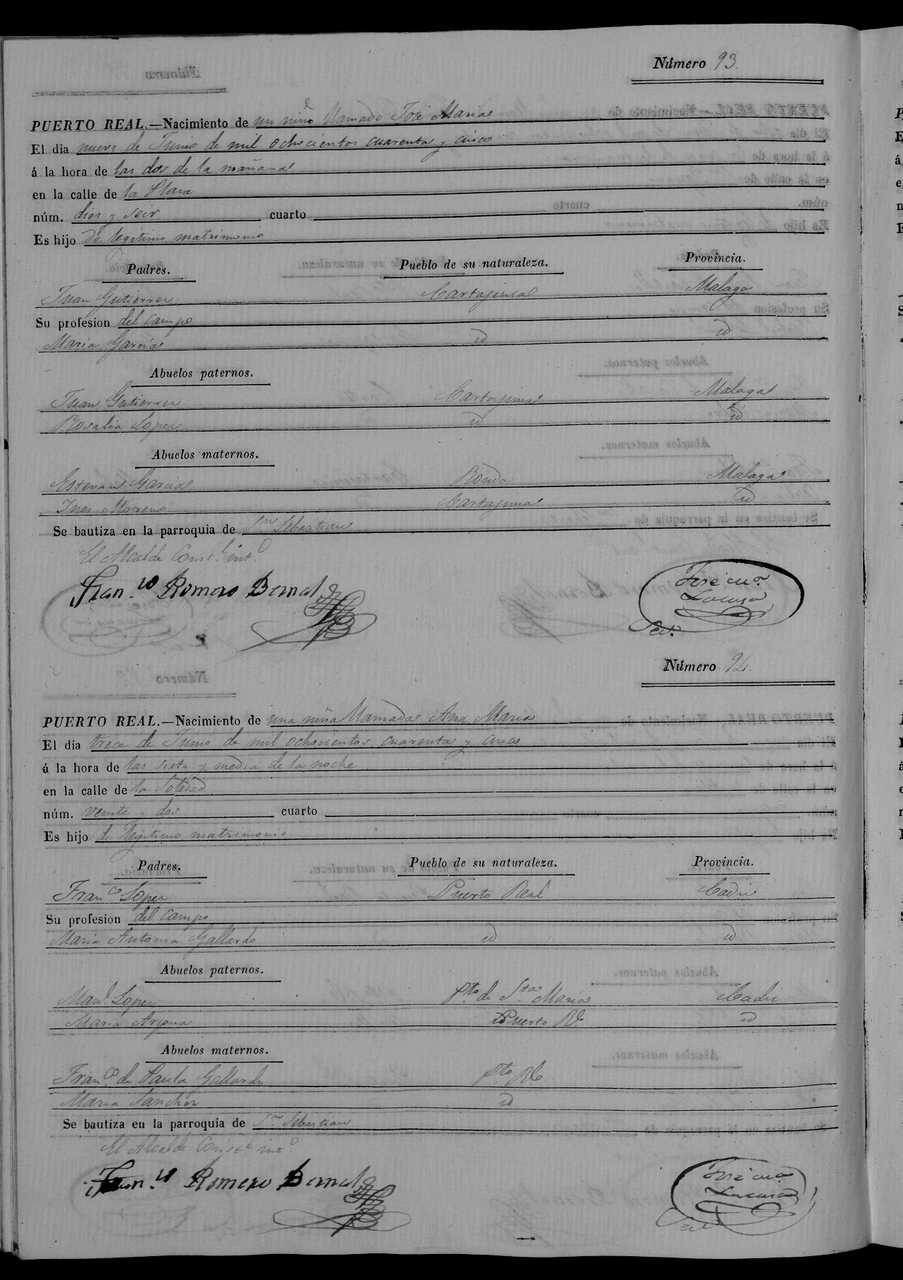 Número 93.
PUERTO REAL.—Nacimiento de un niño llamado José Maria
El dia nueve de Junio de mil ochocientos cuarenta y cinco
á la hora de las dos de la mañana
en la calle de la Plaza
núm. diez y seis cuarto
Es hijo de legitimo matrimonio
Padres. Pueblo de su naturaleza. Provincia.
Juan Gutierrez Cartajima Malaga
Su profesion del campo
Maria Garcia id id
Abuelos paternos.
Juan Gutierrez Cartajima Malaga
Rosalia Lopez id id
Abuelos maternos.
Estevan Garcia Ronda Malaga
Ines Moreno Cartajima id
Se bautiza en la parroquia de Sn Sebastian
El Alcalde Const.l int.o
Fran.co Romero Bernal
José M.a
Srio.
Número 94.
PUERTO REAL.—Nacimiento de una niña llamada Ana Maria
El día trece de Junio de mil ochocientos cuarenta y cinco
á la hora de las siete y media de la noche
en la calle de la Soledad
núm. veinte y dos cuarto
Es hijo de legitimo matrimonio
Padres. Pueblo de su naturaleza. Provincia.
Fran.co Lopez Puerto Real Cadiz
Su profesion del campo
Maria Antonia Gallardo id id
Abuelos paternos.
Man.l Lopez Pto de Sta Maria Cadiz
Maria Arjona Puerto Rl id
Abuelos maternos.
Fran.co de Paula Gallardo Pto Rl
Maria Sanchez id
Se bautiza en la parroquia de Sn Sebastian
El Alcalde Const.l int.o
Fran.co Romero Bernal
José M.a
Srio.